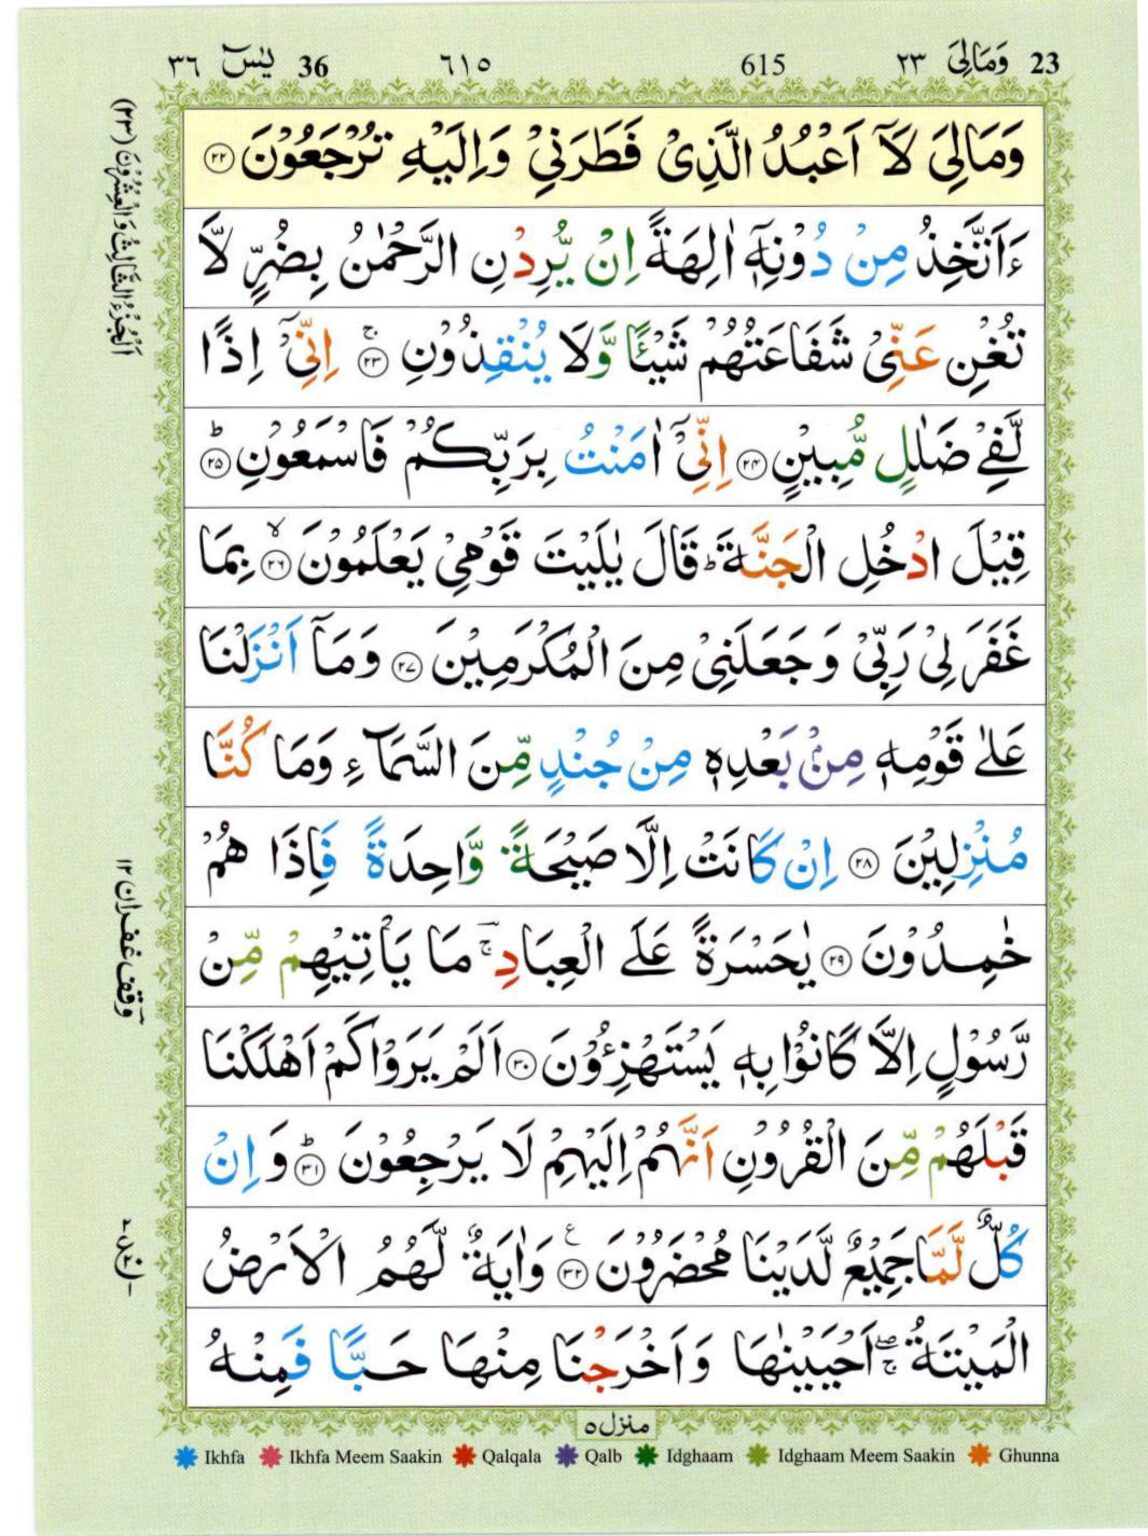 23 وَمَالِیَ ٢٣ 615 ٦١٥ 36 یٰسٓ ٣٦
وَمَالِیَ لَاۤ اَعْبُدُ الَّذِیْ فَطَرَنِیْ وَاِلَیْهِ تُرْجَعُوْنَ ﴿٢٢﴾
ءَاَتَّخِذُ مِنْ دُوْنِهٖۤ اٰلِهَةً اِنْ یُّرِدْنِ الرَّحْمٰنُ بِضُرٍّ لَّا
تُغْنِ عَنِّیْ شَفَاعَتُهُمْ شَیْـًٔا وَّلَا یُنْقِذُوْنِ ۚ﴿٢٣﴾ اِنِّیْۤ اِذًا
لَّفِیْ ضَلٰلٍ مُّبِیْنٍ ﴿٢٤﴾ اِنِّیْۤ اٰمَنْتُ بِرَبِّكُمْ فَاسْمَعُوْنِ ؕ﴿٢٥﴾
قِیْلَ ادْخُلِ الْجَنَّةَ ؕ قَالَ یٰلَیْتَ قَوْمِیْ یَعْلَمُوْنَ ۙ﴿٢٦﴾ بِمَا
غَفَرَ لِیْ رَبِّیْ وَجَعَلَنِیْ مِنَ الْمُكْرَمِیْنَ ﴿٢٧﴾ وَمَاۤ اَنْزَلْنَا
عَلٰی قَوْمِهٖ مِنْۢ بَعْدِهٖ مِنْ جُنْدٍ مِّنَ السَّمَآءِ وَمَا كُنَّا
مُنْزِلِیْنَ ﴿٢٨﴾ اِنْ كَانَتْ اِلَّا صَیْحَةً وَّاحِدَةً فَاِذَا هُمْ
خٰمِدُوْنَ ﴿٢٩﴾ یٰحَسْرَةً عَلَی الْعِبَادِ ۚ مَا یَاْتِیْهِمْ مِّنْ
رَّسُوْلٍ اِلَّا كَانُوْا بِهٖ یَسْتَهْزِءُوْنَ ﴿٣٠﴾ اَلَمْ یَرَوْا كَمْ اَهْلَكْنَا
قَبْلَهُمْ مِّنَ الْقُرُوْنِ اَنَّهُمْ اِلَیْهِمْ لَا یَرْجِعُوْنَ ؕ﴿٣١﴾ وَاِنْ
كُلٌّ لَّمَّا جَمِیْعٌ لَّدَیْنَا مُحْضَرُوْنَ ﴿٣٢﴾ ع وَاٰیَةٌ لَّهُمُ الْاَرْضُ
الْمَیْتَةُ ۖۚ اَحْیَیْنٰهَا وَاَخْرَجْنَا مِنْهَا حَبًّا فَمِنْهُ
اَلْجُزْءُ الثَّالِثُ وَالْعِشْرُوْنَ (٢٣)
وقف غفران ١٢
منزل ٥
Ikhfa Ikhfa Meem Saakin Qalqala Qalb Idghaam Idghaam Meem Saakin Ghunna